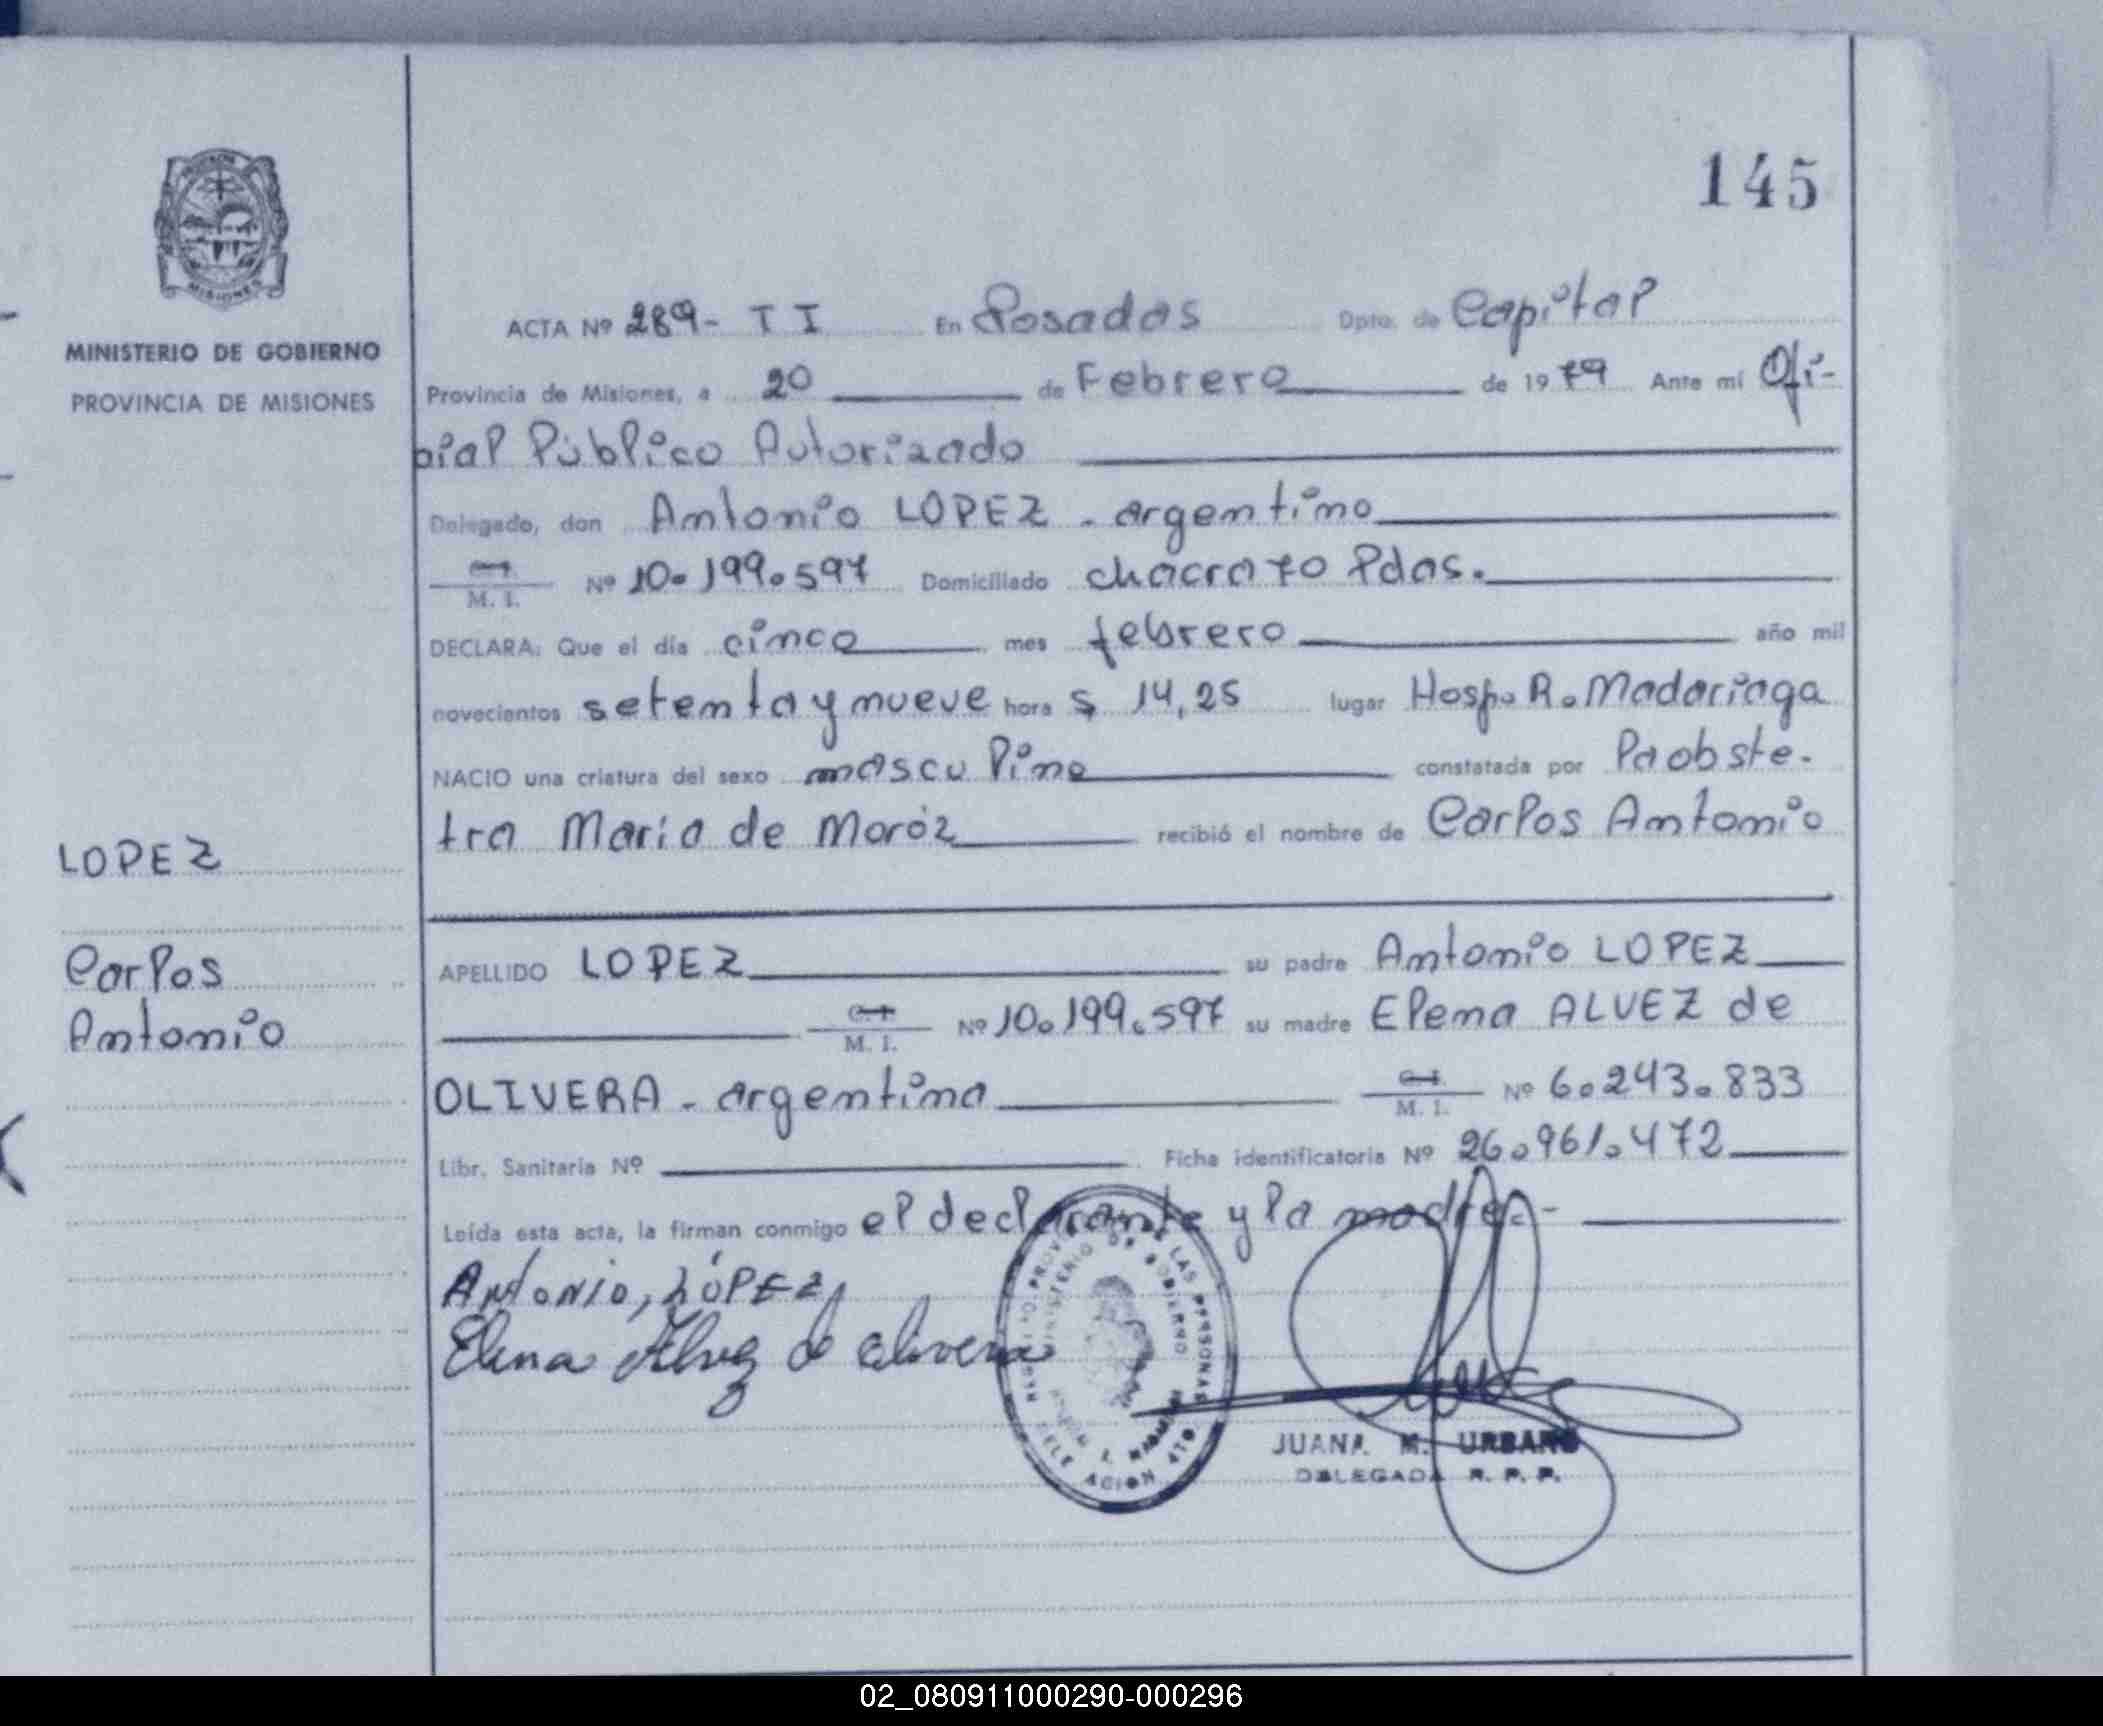 145
MISIONES
MINISTERIO DE GOBIERNO
PROVINCIA DE MISIONES
LOPEZ
Carlos
Antonio
ACTA Nº 289- TI En Posadas Dpto. de Capital
Provincia de Misiones, a 20 de Febrero de 1979 Ante mí Ofi-
cial Público Autorizado
Delegado, don Antonio LOPEZ - argentino
M. I. Nº 10.199.597 Domiciliado chacra 70 Pdas.
DECLARA: Que el día cinco mes febrero año mil
novecientos setenta y nueve hora s 14,25 lugar Hosp. R. Madariaga
NACIO una criatura del sexo masculino constatada por la obste-
tra María de Moróz recibió el nombre de Carlos Antonio
APELLIDO LOPEZ su padre Antonio LOPEZ
M. I. Nº 10.199.597 su madre Elena ALVEZ de
OLIVERA - argentina M. I. Nº 6.243.833
Libr. Sanitaria Nº Ficha identificatoria Nº 26.961.472
Leída esta acta, la firman conmigo el declarante y la madre.-
Antonio, LÓPEZ
Elena Alvez de olivera
JUANA M. URBANO
DELEGADA R. P. P.
02_080911000290-000296